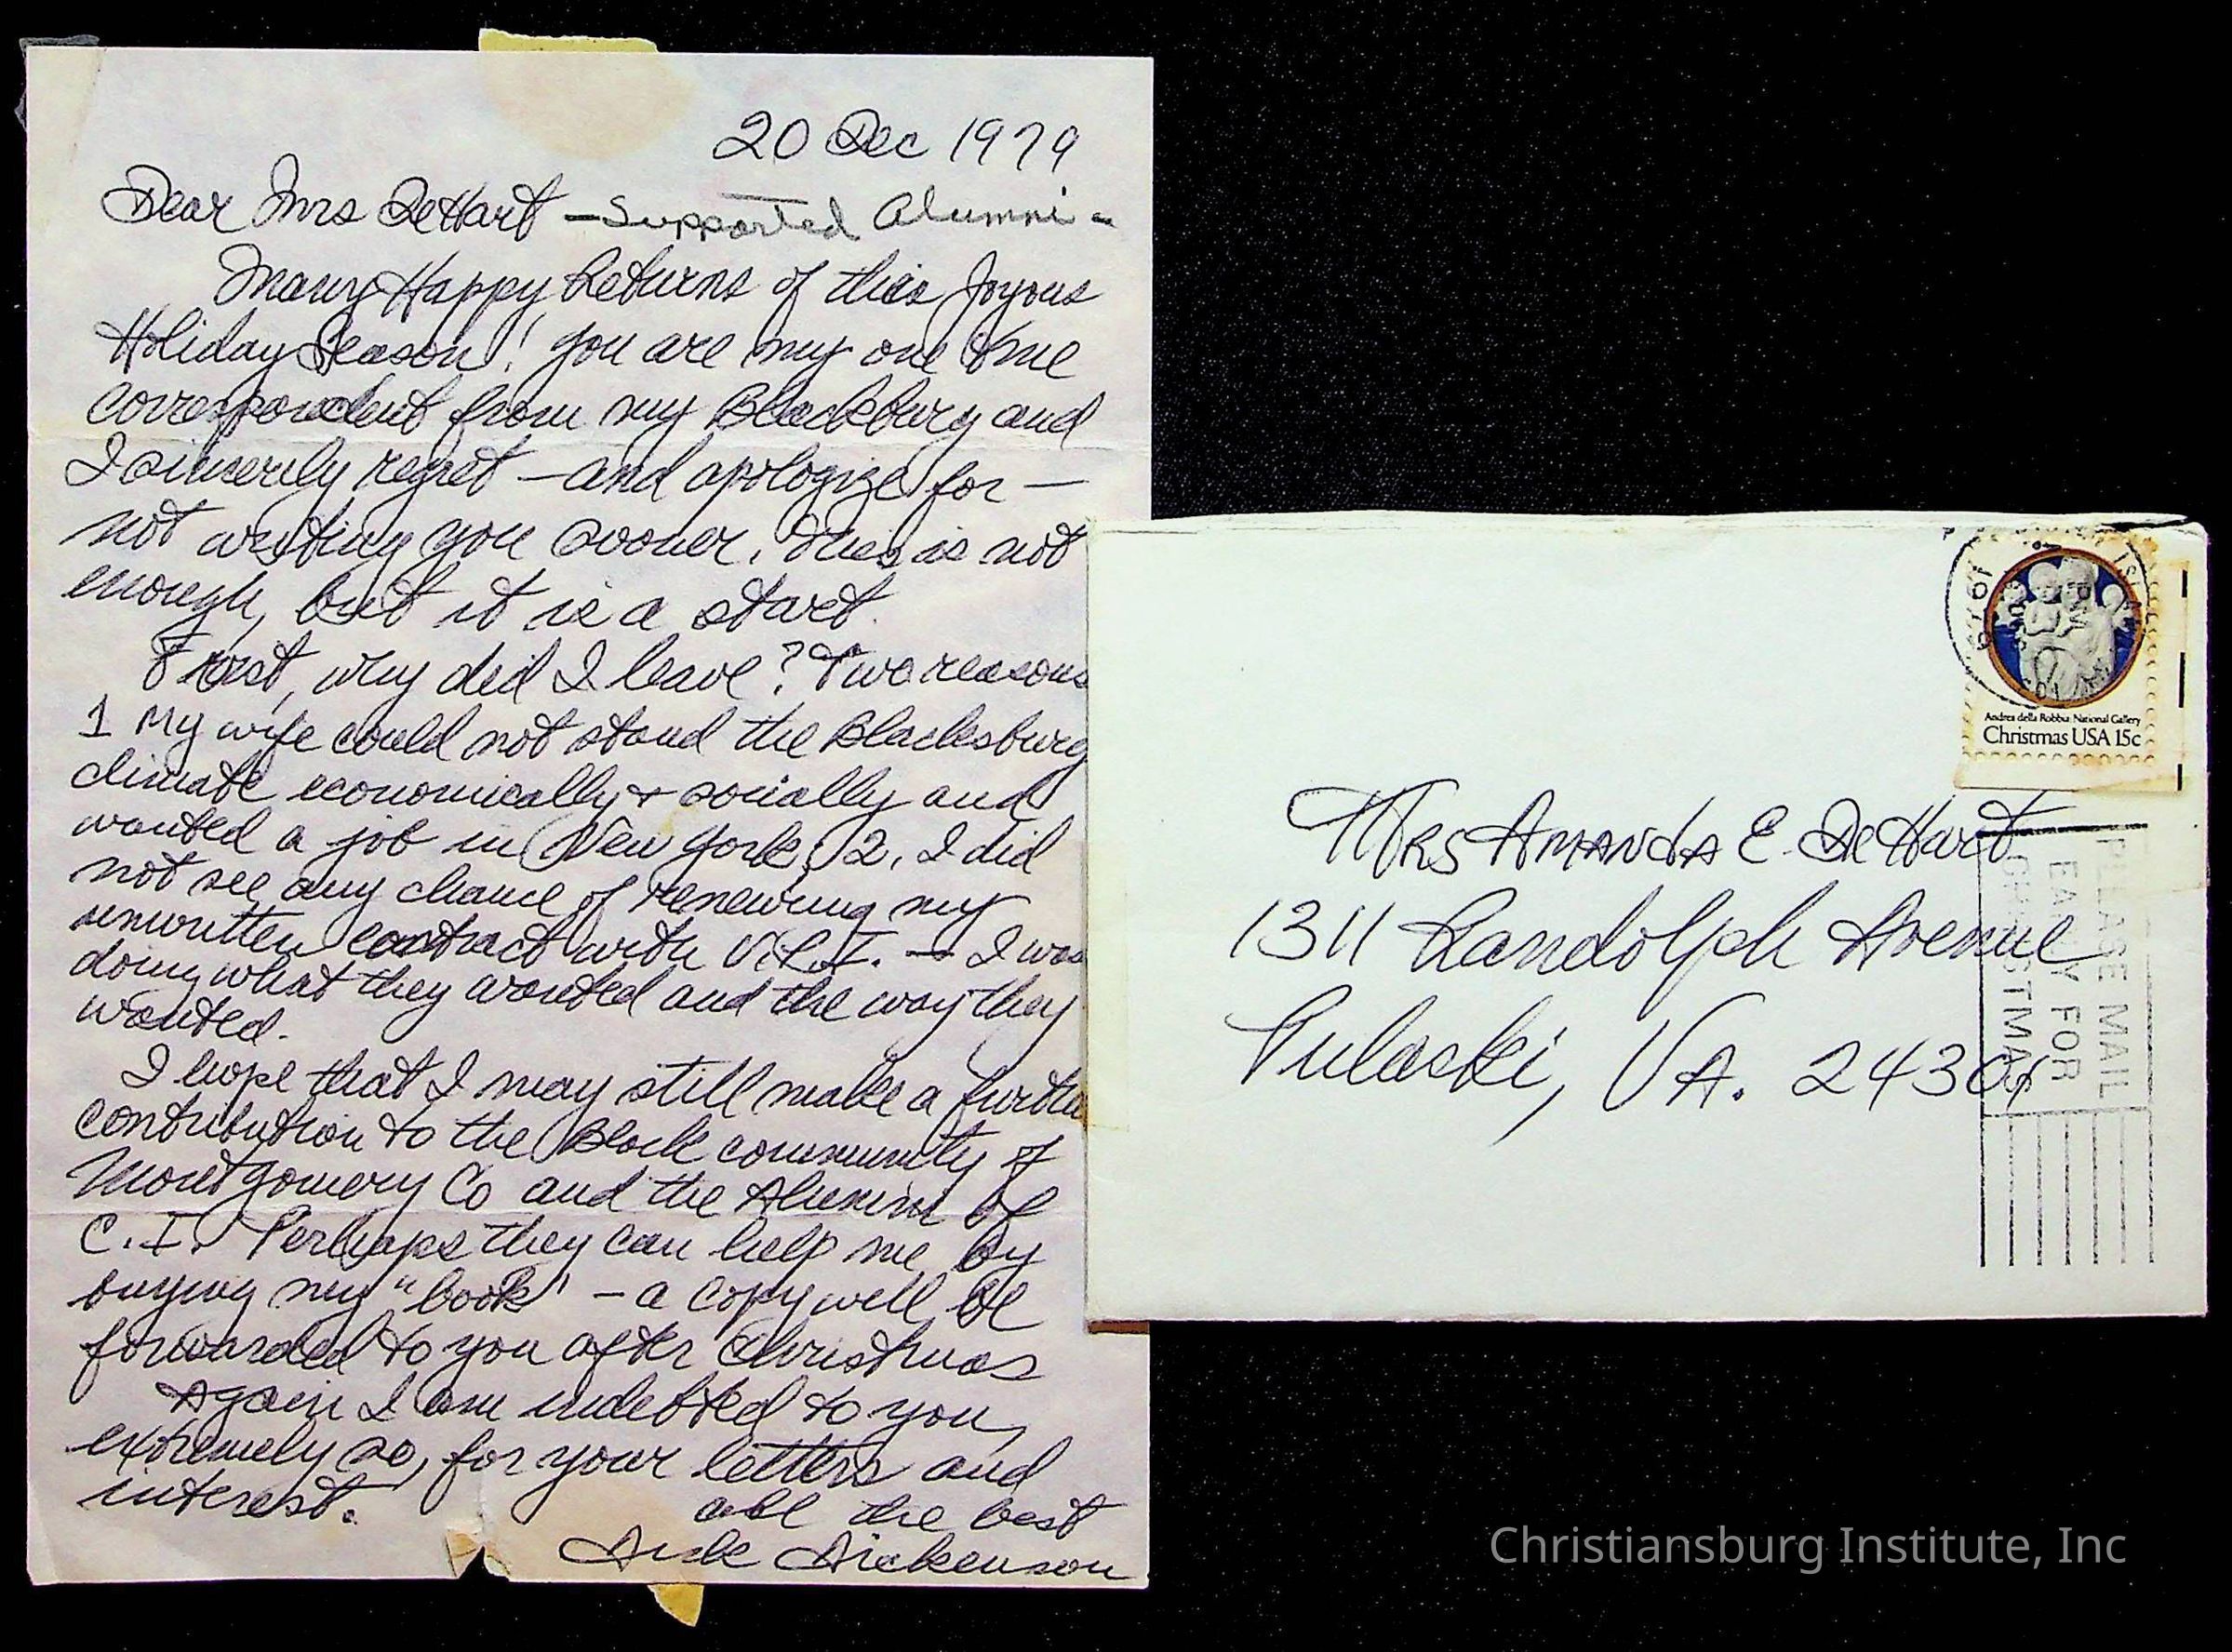 20 Dec 1979
Dear Mrs DeHart – Supported Alumni –
Many Happy Returns of this Joyous
Holiday Season! You are my one true
correspondent from my Blacksburg and
I sincerely regret – and apologize for –
not writing you sooner. This is not
enough, but it is a start.
First, why did I leave? Two reasons
1 My wife could not stand the Blacksburg
climate economically + socially and
wanted a job in New York, 2. I did
not see any chance of renewing my
unwritten contract with V.P.I. – I was
doing what they wanted and the way they
wanted.
I hope that I may still make a further
contribution to the Black community of
Montgomery Co and the Alumni of
C.I. Perhaps they can help me by
buying my "book" – a copy will be
forwarded to you after Christmas
Again I am indebted to you,
extremely so, for your letters and
interest.
all the best
Dickenson
Andrea della Robbia: National Gallery
Christmas USA 15c
Mrs Amanda E. DeHart
1311 Randolph Avenue
Pulaski, VA. 24301
PLEASE MAIL
EARLY FOR
CHRISTMAS
Christiansburg Institute, Inc